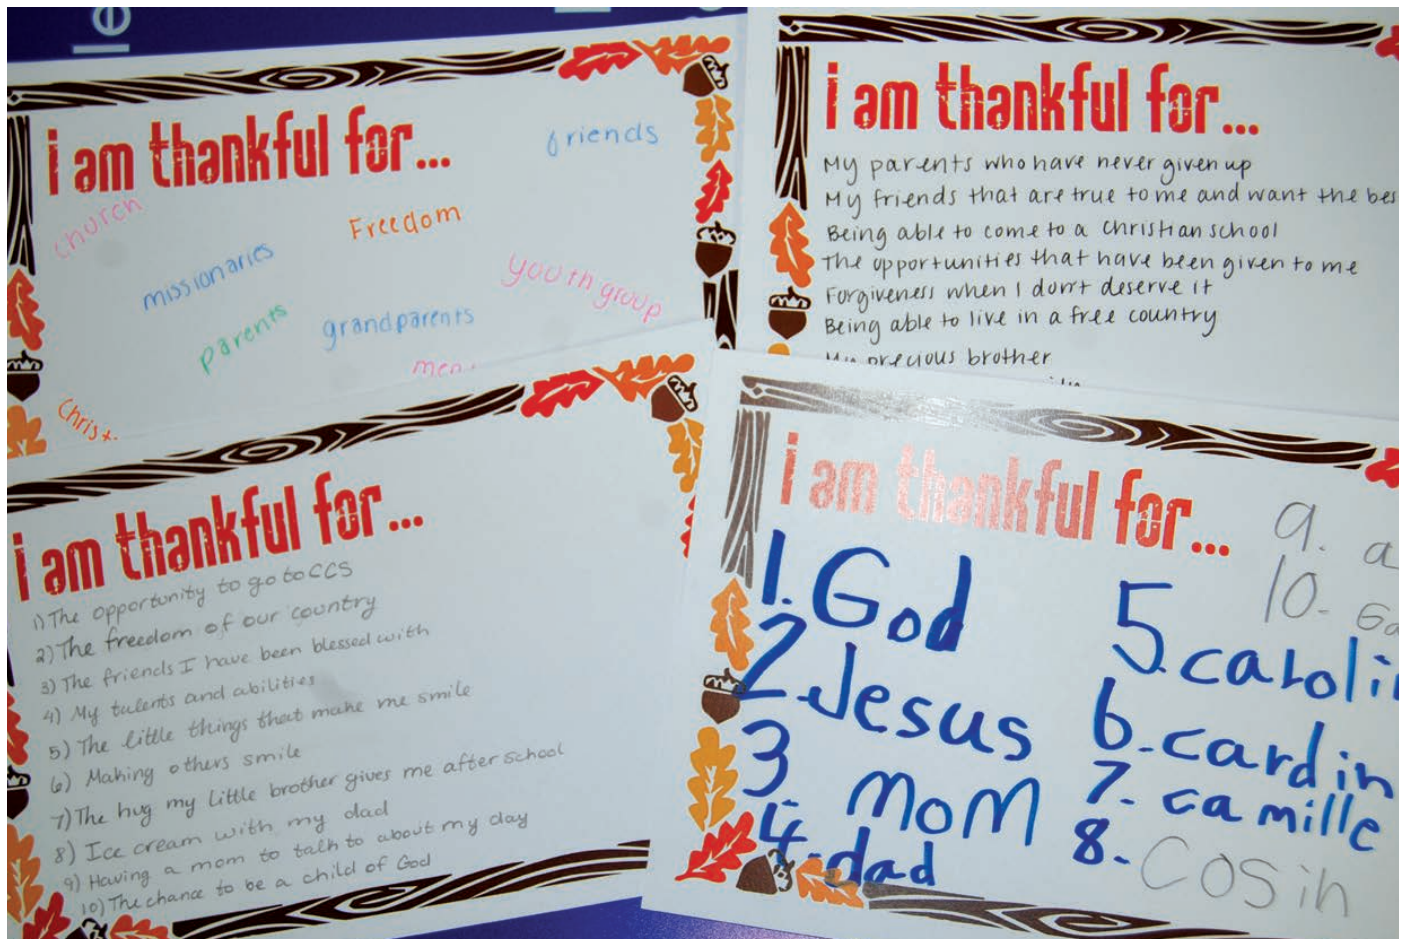 le
i am thankful for...
friends
church
Freedom
missionaries
youth group
parents
grandparents
Christ
i am thankful for...
My parents who have never given up
My friends that are true to me and want the bes
Being able to come to a Christian school
The opportunities that have been given to me
Forgiveness when I don't deserve it
Being able to live in a free country
My precious brother
i am thankful for...
1) The opportunity to go to CCS
2) The freedom of our country
3) The friends I have been blessed with
4) My talents and abilities
5) The little things that make me smile
6) Making others smile
7) The hug my little brother gives me after school
8) Ice cream with my dad
9) Having a mom to talk to about my day
10) The chance to be a child of God
i am thankful for...
1. God
2. Jesus
3 MOM
4. dad
5. caroli
6. cardin
7. camille
8. COSin
9. a
10. Ga